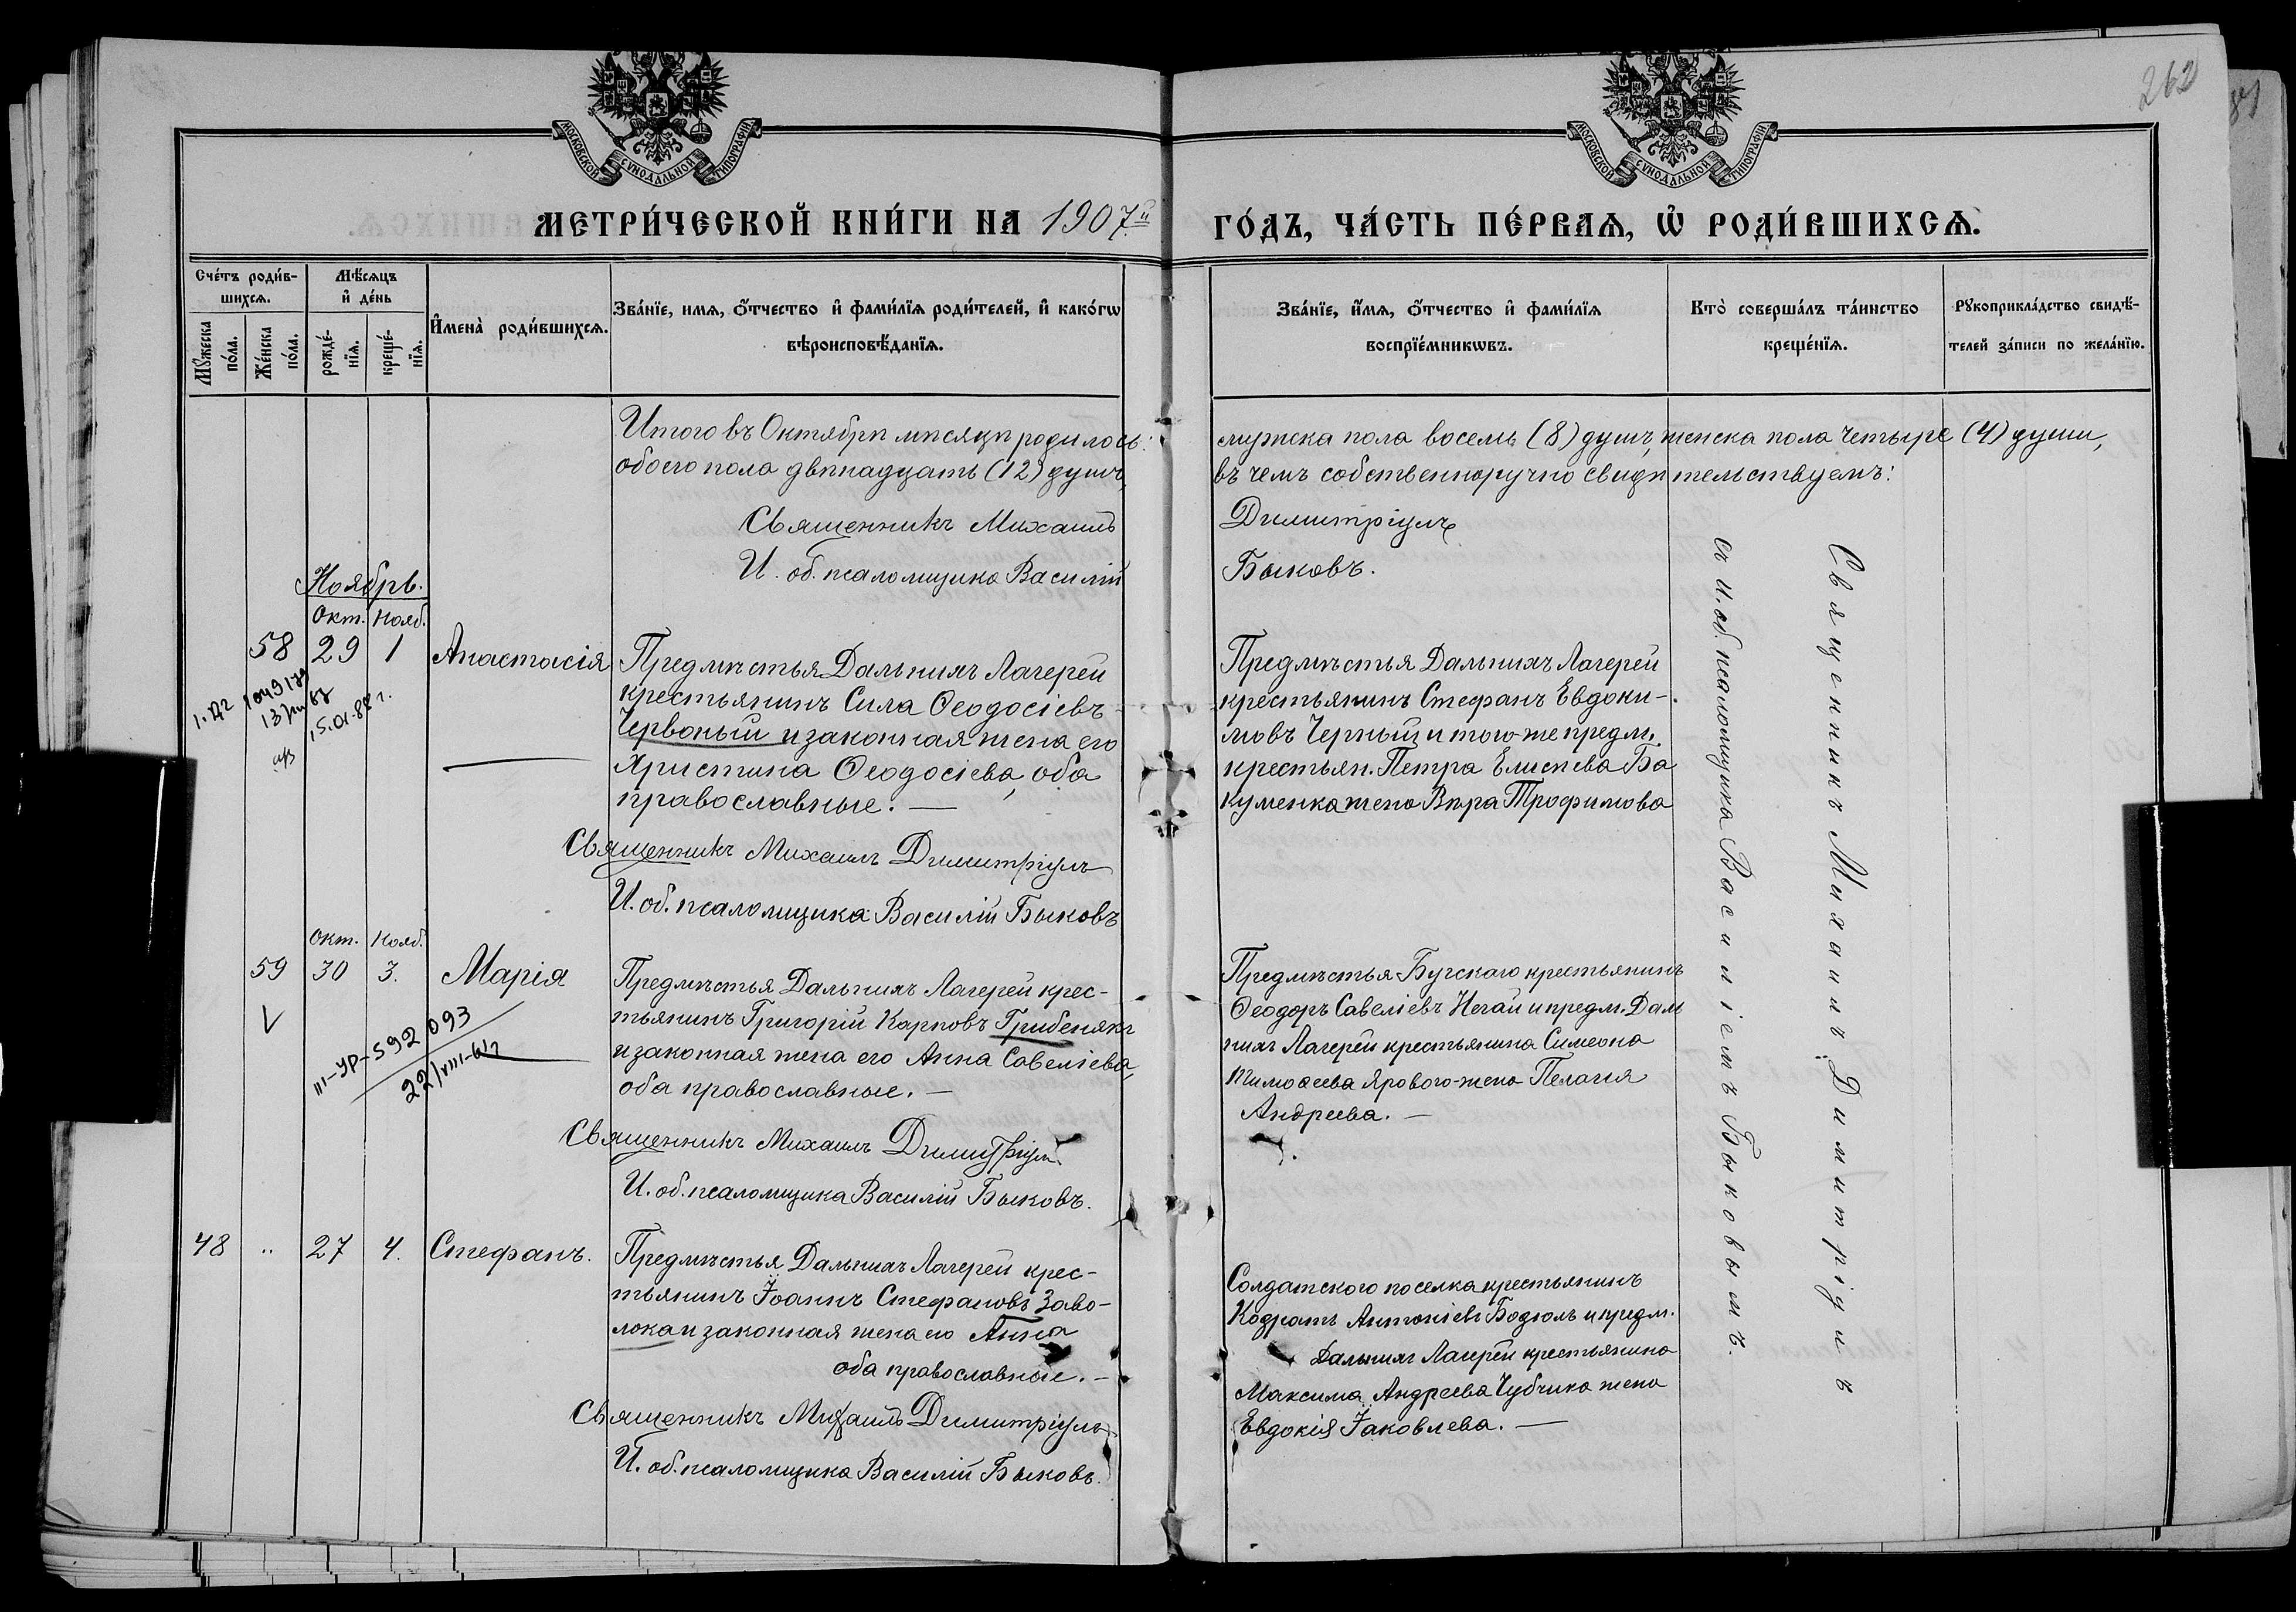 262
МОСКОВСКОЙ СѴНОДАЛЬНОЙ ТИПОГРАФІИ
МОСКОВСКОЙ СѴНОДАЛЬНОЙ ТИПОГРАФІИ
МЕТРИ́ЧЕСКОЙ КНИ́ГИ НА 1907й
ГО́ДЪ, ЧА́СТЬ ПЕ́РВАѦ, Ѡ҆ РОДИ́ВШИХСѦ.
Сче́тъ роди́в-
шихсѧ.
Мꙋ́жеска по́ла.
Же́нска по́ла.
Мѣ́сѧцъ
и҆ де́нь
рожде́-
нїѧ.
креще́-
нїѧ.
И҆мена̀ роди́вшихсѧ.
Зва́нїе, имѧ, ѻ҆́тчество и҆ фами́лїѧ роди́телей, и҆ како́гѡ
вѣроисповѣ́данїѧ.
Зва́нїе, и҆́мѧ, ѻ҆́тчество и҆ фами́лїѧ
воспрїе́мникѡвъ.
Кто̀ соверша́лъ та́инство
креще́нїѧ.
Рꙋкоприкла́дство свидѣ́-
телей за́писи по жела́нїю.
Итого въ Октябрѣ мѣсяцѣ родилось:
обоего пола двѣнадцать (12) душъ,
Священникъ Михаилъ
И. об. псаломщика Василій
мужеска пола восемь (8) душъ, женска пола четыре (4) души,
въ чемъ собственноручно свидѣтельствуемъ:
Димитріулъ
Быковъ.
Ноябрь.
Окт. Нояб.
58 29 1 Анастасія
15.01.88 г.
Предмѣстья Дальнихъ Лагерей
крестьянинъ Сила Ѳеодосіевъ
Червоный и законная жена его
Христина Ѳеодосіева, оба
православные. —
Священникъ Михаилъ Димитріулъ
И. об. псаломщика Василій Быковъ
Предмѣстья Дальнихъ Лагерей
крестьянинъ Стефанъ Евдоки-
мовъ Черный и того-же предм.
крестьян. Петра Елисѣева Ба
куменка жена Вѣра Трофимова
Окт. Нояб.
59 30 3. Марія
V
III-УР-592093
22/VIII-61 г
Предмѣстья Дальнихъ Лагерей крес-
тьянинъ Григорій Карповъ Грибенякъ
и законная жена его Анна Савеліева,
оба православные. —
Священникъ Михаилъ Димитріулъ
И. об. псаломщика Василій Быковъ.
Предмѣстья Бугскаго крестьянинъ
Ѳеодоръ Савеліевъ Негай и предм. Даль
нихъ Лагерей крестьянина Симеона
Тимоѳеева Ярового жена Пелагія
Андреева. —
48 " 27 4. Стефанъ.
Предмѣстья Дальнихъ Лагерей крес-
тьянинъ Іоаннъ Стефановъ Заво-
лока и законная жена его Анна
оба православные. —
Священникъ Михаилъ Димитріулъ
И. об. псаломщика Василій Быковъ.
Солдатского поселка крестьянинъ
Кодратъ Антоніевъ Бодюлъ и предм.
Дальнихъ Лагерей крестьянина
Максима Андреева Чубчика жена
Евдокія Іаковлева. —
Священникъ Михаилъ Димитріулъ
съ и. об. псаломщика Василіемъ Быковымъ.